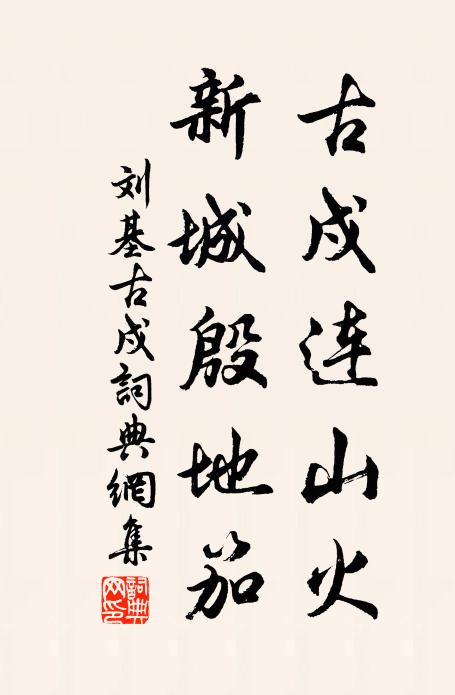 古戍连山火
新城殷地笳
刘基古戍詞典網集
詞典网印